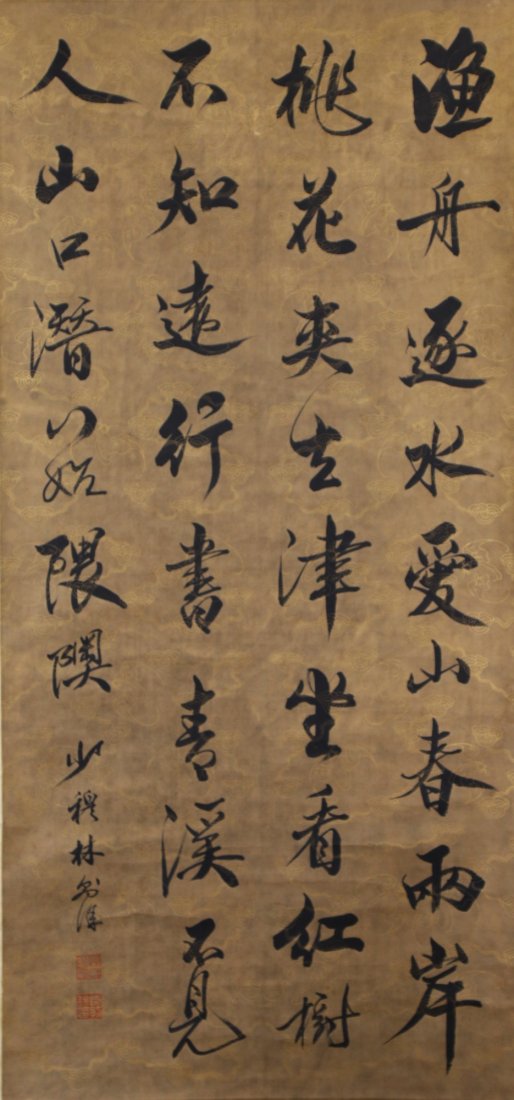 漁舟逐水愛山春兩岸
桃花夾去津坐看紅樹
不知遠行書青溪不見
人山口潛行始隈隩
少穆林則徐